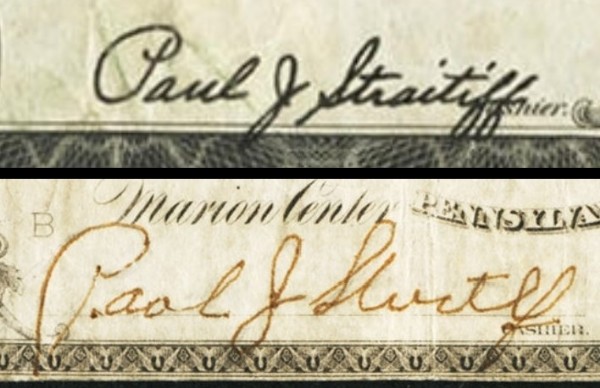 Paul J Straitiff
Cashier.
Marion Center PENNSYLVA
B
Paul J
CASHIER.